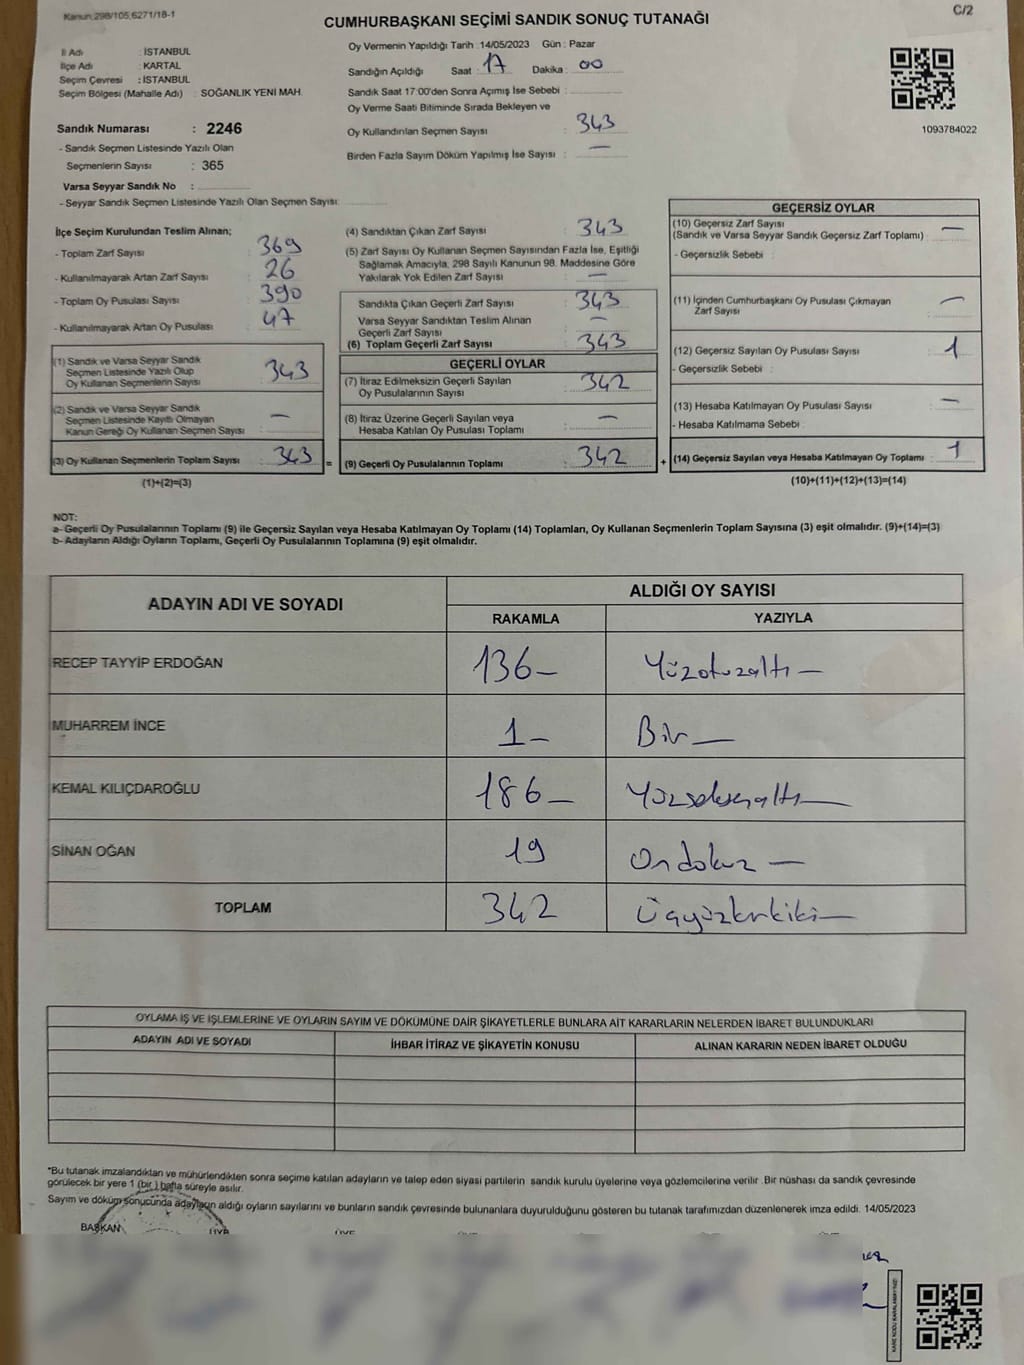 Kanun:298/105,6271/18-1
C/2
CUMHURBAŞKANI SEÇİMİ SANDIK SONUÇ TUTANAĞI
İl Adı : İSTANBUL
İlçe Adı : KARTAL
Seçim Çevresi : İSTANBUL
Seçim Bölgesi (Mahalle Adı) : SOĞANLIK YENİ MAH.
Sandık Numarası : 2246
- Sandık Seçmen Listesinde Yazılı Olan
Seçmenlerin Sayısı : 365
Varsa Seyyar Sandık No :
- Seyyar Sandık Seçmen Listesinde Yazılı Olan Seçmen Sayısı:
Oy Vermenin Yapıldığı Tarih : 14/05/2023 Gün : Pazar
Sandığın Açıldığı Saat : 17 Dakika : 00
Sandık Saat 17:00'den Sonra Açımış İse Sebebi :
Oy Verme Saati Bitiminde Sırada Bekleyen ve
Oy Kullandırılan Seçmen Sayısı : 343
Birden Fazla Sayım Döküm Yapılmış İse Sayısı : —
1093784022
İlçe Seçim Kurulundan Teslim Alınan;
- Toplam Zarf Sayısı : 369
- Kullanılmayarak Artan Zarf Sayısı : 26
- Toplam Oy Pusulası Sayısı : 390
- Kullanılmayarak Artan Oy Pusulası : 47
(1) Sandık ve Varsa Seyyar Sandık
Seçmen Listesinde Yazılı Olup
Oy Kullanan Seçmenlerin Sayısı : 343
(2) Sandık ve Varsa Seyyar Sandık
Seçmen Listesinde Kayıtlı Olmayan
Kanun Gereği Oy Kullanan Seçmen Sayısı : —
(3) Oy Kullanan Seçmenlerin Toplam Sayısı : 343
(1)+(2)=(3)
(4) Sandıktan Çıkan Zarf Sayısı : 343
(5) Zarf Sayısı Oy Kullanan Seçmen Sayısından Fazla İse, Eşitliği
Sağlamak Amacıyla, 298 Sayılı Kanunun 98. Maddesine Göre
Yakılarak Yok Edilen Zarf Sayısı : —
Sandıkta Çıkan Geçerli Zarf Sayısı : 343
Varsa Seyyar Sandıktan Teslim Alınan
Geçerli Zarf Sayısı : —
(6) Toplam Geçerli Zarf Sayısı : 343
GEÇERLİ OYLAR
(7) İtiraz Edilmeksizin Geçerli Sayılan
Oy Pusulalarının Sayısı : 342
(8) İtiraz Üzerine Geçerli Sayılan veya
Hesaba Katılan Oy Pusulası Toplamı : —
= (9) Geçerli Oy Pusulalarının Toplamı : 342
GEÇERSİZ OYLAR
(10) Geçersiz Zarf Sayısı
(Sandık ve Varsa Seyyar Sandık Geçersiz Zarf Toplamı) : —
- Geçersizlik Sebebi :
(11) İçinden Cumhurbaşkanı Oy Pusulası Çıkmayan
Zarf Sayısı : —
(12) Geçersiz Sayılan Oy Pusulası Sayısı : 1
- Geçersizlik Sebebi :
(13) Hesaba Katılmayan Oy Pusulası Sayısı : —
- Hesaba Katılmama Sebebi :
+ (14) Geçersiz Sayılan veya Hesaba Katılmayan Oy Toplamı : 1
(10)+(11)+(12)+(13)=(14)
NOT:
a- Geçerli Oy Pusulalarının Toplamı (9) ile Geçersiz Sayılan veya Hesaba Katılmayan Oy Toplamı (14) Toplamları, Oy Kullanan Seçmenlerin Toplam Sayısına (3) eşit olmalıdır. (9)+(14)=(3)
b- Adayların Aldığı Oyların Toplamı, Geçerli Oy Pusulalarının Toplamına (9) eşit olmalıdır.
ADAYIN ADI VE SOYADI
ALDIĞI OY SAYISI
RAKAMLA YAZIYLA
RECEP TAYYİP ERDOĞAN 136— Yüzotuzaltı —
MUHARREM İNCE 1— Bir —
KEMAL KILIÇDAROĞLU 186— Yüzseksenaltı —
SİNAN OĞAN 19 Ondokuz —
TOPLAM 342 Üçyüzkırkiki —
OYLAMA İŞ VE İŞLEMLERİNE VE OYLARIN SAYIM VE DÖKÜMÜNE DAİR ŞİKAYETLERLE BUNLARA AİT KARARLARIN NELERDEN İBARET BULUNDUKLARI
ADAYIN ADI VE SOYADI İHBAR İTİRAZ VE ŞİKAYETİN KONUSU ALINAN KARARIN NEDEN İBARET OLDUĞU
*Bu tutanak imzalandıktan ve mühürlendikten sonra seçime katılan adayların ve talep eden siyasi partilerin sandık kurulu üyelerine veya gözlemcilerine verilir. Bir nüshası da sandık çevresinde
görülecek bir yere 1 (bir ) hafta süreyle asılır.
Sayım ve döküm sonucunda adayların aldığı oyların sayılarını ve bunların sandık çevresinde bulunanlara duyurulduğunu gösteren bu tutanak tarafımızdan düzenlenerek imza edildi. 14/05/2023
BAŞKAN ÜYE ÜYE